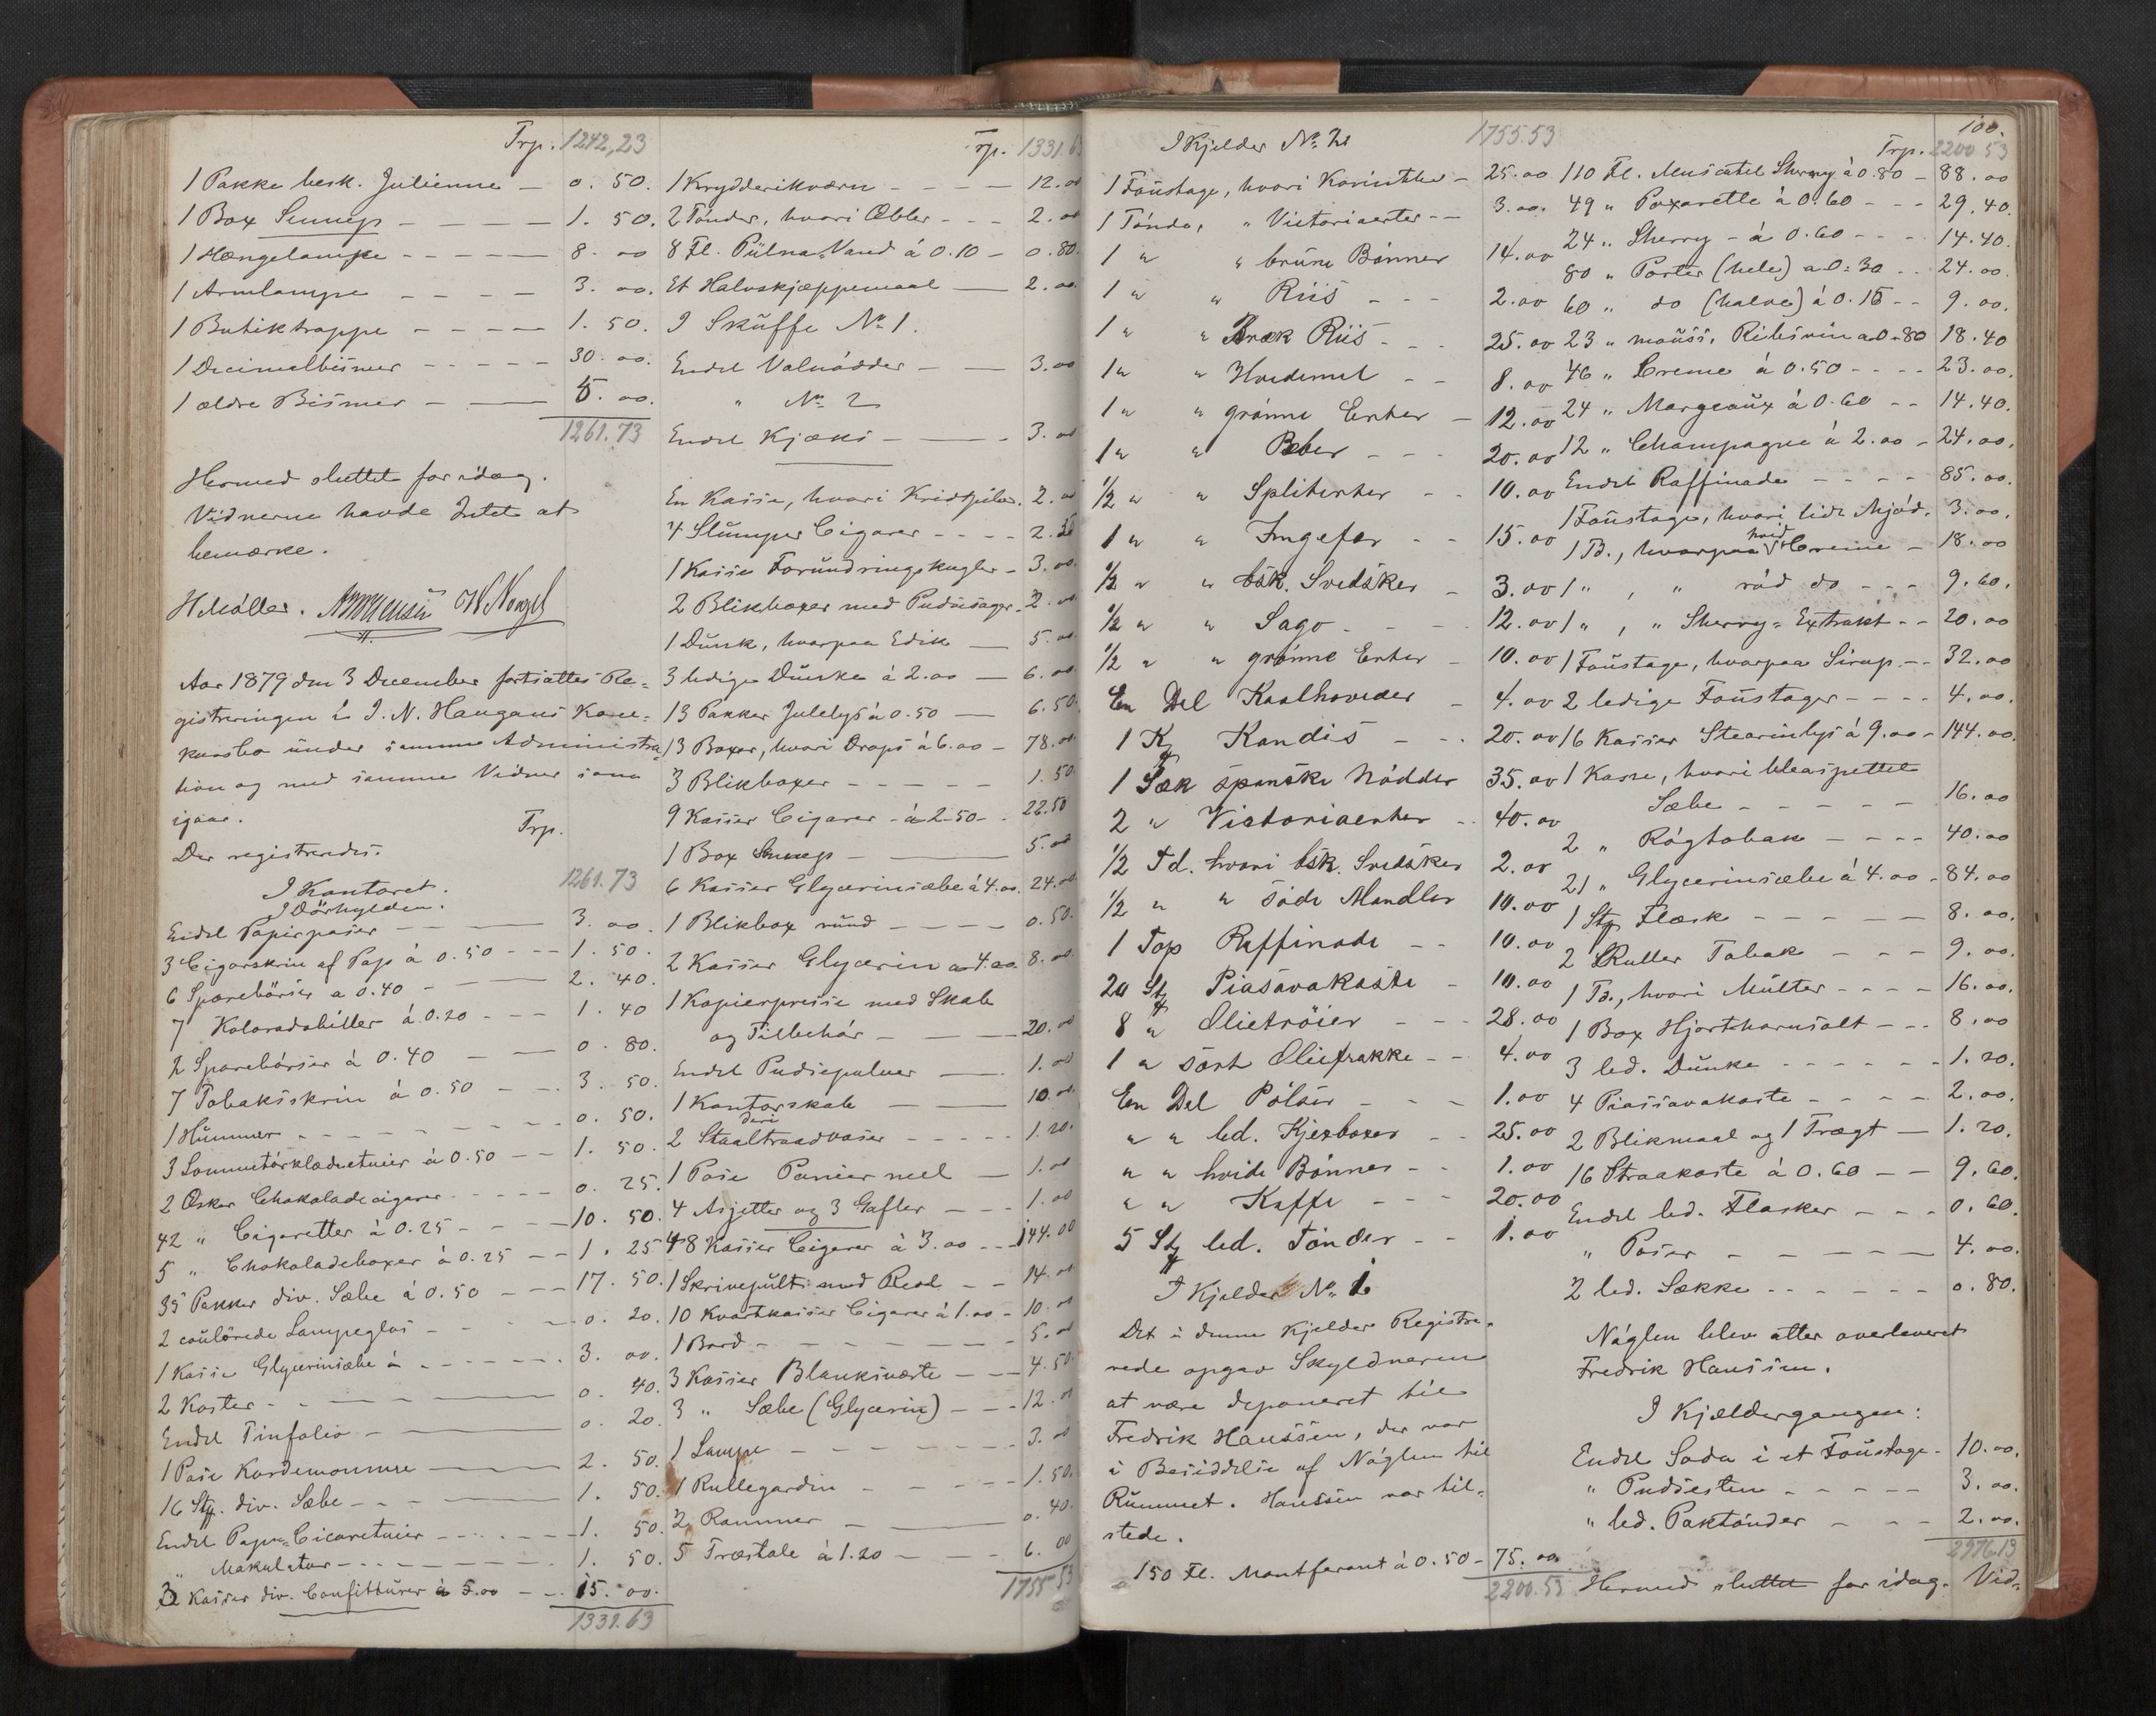 Trp. 1242,23
1 Pakke besk. Julienne — 0. 50.
1 Box Sennep — — — 1. 50.
1 Hængelampe — — — 8. 00
1 Armlampe — — — 3. 00.
1 Butiktrappe — — — 1. 50.
1 Decimalbismer — — — 30. 00.
1 ældre Bismer — — 5. 00.
1261.73
Hermed sluttet for idag.
Vidnerne havde Intet at
bemærke.
H Møller.
Aar 1879 den 3 December fortsattes Re-
gistreringen i I. N. Haugans Kon-
kursbo under samme Administra-
tion og med samme Vidner som
igaar.
Trp.
Der registreredes:
I Kontoret. 1261.73
I Dörhylden.
Endel Papirposer — — 3. 00.
3 Cigarskrin af Pap à 0.50 — — 1. 50.
6 Sparebörser a 0.40 — — 2. 40.
7 Koloradobiller à 0.20 — — 1. 40
2 Sparebörser à 0.40 — — 0. 80.
7 Tobaksskrin à 0.50 — — 3. 50.
1 Hummer — — — 0. 50.
3 Lommetörklædeetuier à 0.50 — — 1. 50.
2 Æsker Chokoladecigarer — — 0. 25.
42 " Cigaretter à 0.25 — — 10. 50.
5 " Chokoladeboxer à 0.25 — — 1. 25
35 Pakker div. Sæbe à 0.50 — — 17. 50.
2 coulörede Lampeglas — — 0. 20.
1 Kasse Glycerinsæbe à — — 3. 00.
2 Koster — — 0. 40.
Endel Tinfolio — — 0. 20.
1 Pose Kardemomme — 2. 50.
16 Stk. div. Sæbe — — 1. 50.
Endel Papir-Cicaretuier — — 1. 50.
" Makulatur — — 1. 50.
3 Kasser div. Confitturer à 5.00 — — 15. 00.
1331.63
Trp. 1331.63
1 Krydderikværn — — — 12.00
2 Tönder, hvori Æbler — — 2.00
8 Fl. Püllna-Vand à 0.10 — 0.80.
Et Halvskjæppemaal — 2.00.
I Skuffe No 1.
Endel Valnödder — — 3.00
" No 2
Endel Kjæks — — 3.00
En Kasse, hvori Kridtpiber. 2.00
4 Slumper Cigarer — — 2.
1 Kasse Forundringskugler — 3.00.
2 Blikboxer med Pudsesager. 2.00
1 Dunk, hvorpaa Edik — 5.00.
3 ledige Dunke à 2.00 — 6.00.
13 Pakker Julelys à 0.50 — 6.50.
13 Boxer, hvori Drops à 6.00 — 78.00.
3 Blikboxer — — — 1.50.
9 Kasser Cigarer à 2.50 — 22.50
1 Box Sennep — — 5.00
6 Kasser Glycerinsæbe à 4.00. 24.00.
1 Blikbox rund — — — 0.50.
2 Kasser Glycerin a 4.00. 8.00.
1 Kopierpresse med Skab
og Tilbehör — — 20.00
Endel Pudsepulver — 1.00
1 Kontorskab — 10.00.
2 Staaltraadvaser — — — 1.20.
1 Pose Paniermel — 1.00
4 Asjetter og 3 Gafler — — 1.00
48 Kasser Cigarer à 3.00 — — 144.00
1 Skrivepult med Reol — — 14.00
10 Kvartkasser Cigarer à 1.00 — 10.00
1 Bord — — — 5.00
3 Kasser Blanksværte — — 4.50.
3 " Sæbe (Glycerin) — — 12.00
1 Lampe — — — 3.00
1 Rullegardin — — — 1.50.
2 Rammer — — 0.40.
5 Træstole à 1.20 — — 6.00
1755.53
I Kjelder No 2. 1755.53
1 Foustage, hvori Korinther — 25.00
1 Tönde, " Victoriaerter — — 3.00.
1 " " brune Bönner 14.00
1 " " Riis — — — 2.00
1 " " Bræk Riis — — 25.00
1 " " Hvedemel — — 8.00
1 " " grönne Erter — 12.00
1 " " Peber — — — 20.00
1/2 " " Spliterter — — 10.00
1 " " Ingefær — — 15.00
1/2 " " bsk. Svedsker — 3.00
1/2 " " Sago — — — 12.00
1/2 " " grönne Erter — 10.00
En Del Kaalhoveder — 4.00
1 K Kandis — — — 20.00
1 Sæk spanske Nödder 35.00
2 " Victoriaerter — — 40.00
1/2 Td. hvori bsk. Svedsker 2.00
1/2 " " söde Mandler 10.00
1 Top Raffinade — — 10.00
20 Stk Piasavakoste — 10.00
8 " Olietröier — — — 28.00
1 " sort Oliefrakke — — 4.00
En Del Pölser — — — 1.00
" " led. Kjexboxer — — 25.00
" " hvide Bönner — — 1.00
" " Kaffe — — — 20.00
5 Stk led. Tönder — — 1.00
I Kjelder No 1
Det i denne Kjelder Registre-
rede opgav Skyldneren
at være deponeret til
Fredrik Hanssen, der var
i Besiddelse af Nöglen til
Rummet. Hanssen var til-
stede.
150 Fl. Montferant à 0.50 — 75.00.
2200.53
100.
Trp. 2200.53
110 Fl. Muscatel Sherry à 0.80 — 88.00
49 " Paxarette à 0.60 — — — 29.40.
24 " Sherry — à 0.60 — — — 14.40.
80 " Porter (hele) a 0.30 — — 24.00.
60 " do (halve) à 0.15 — — 9.00.
23 " mouss. Ribsvin a 0.80 18.40
46 " Creme à 0.50 — — — 23.00.
24 " Margeaux à 0.60 — — 14.40.
12 " Champagne à 2.00 — 24.00.
Endel Raffinade — — — 85.00.
1 Foustage, hvori lidt Mjöd. 3.00.
1 Td., hvorpaa hvid Creme — 18.00
1 " , " röd do — — — 9.60.
1 " , " Sherry-Extrakt — — 20.00
1 Foustage, hvorpaa Sirup — — 32.00
2 ledige Foustager — — — 4.00.
16 Kasser Stearinlys à 9.00 — 144.00.
1 Kasse, hvori blaaspettet
Sæbe — — — — 16.00
2 " Rögtobak — — — 40.00
21 " Glycerinsæbe à 4.00 — 84.00
1 Stk Flæsk — — — — 8.00.
2 Ruller Tobak — — — 9.00.
1 Td., hvori Multer — — — 16.00.
1 Box Hjortchornsalt — — 8.00
3 led. Dunke — — — — 1.20.
4 Piassavakoste — — — 2.00.
2 Blikmaal og 1 Tragt — 1.20.
16 Straakoste à 0.60 — — 9.60.
Endel led. Flasker — — — 0.60.
" Poser — — — — 4.00.
2 led. Sække — — — — 0.80.
Nöglen blev atter overleveret
Fredrik Hanssen.
I Kjældergangen:
Endel Soda i et Foustage — 10.00.
" Pudsesten — — — — 3.00.
" led. Paktönder — — — 2.00.
2976.13
Hermed sluttet for idag. Vid-